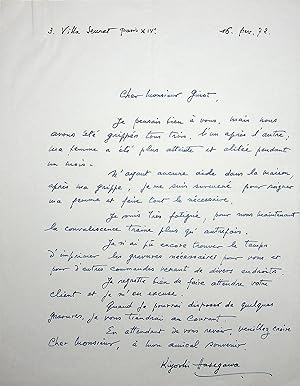 3. Villa Seurat Paris XIVe 16. fev. 72.
Cher Monsieur
Je pensais bien à vous, mais nous
avons été grippés tous trois, l'un après l'autre,
ma femme a été plus atteinte et alitée pendant
un mois.
N'ayant aucune aide dans la maison
après ma grippe, je me suis surmené pour soigner
ma femme et faire tout le nécessaire.
Je suis très fatigué, pour nous maintenant
la convalescence traine plus qu'autrefois.
Je n'ai pû encore trouver le temps
d'imprimer les gravures necessaires pour vous et
pour d'autres commandes venant de divers endroits.
Je regrette bien de faire attendre votre
client et je m'en excuse.
Quand je pourrai disposer de quelques
gravures, je vous tiendrai au courant.
En attendant de vous revoir, veuillez croire
Cher Monsieur, à mon amical souvenir
Kiyoshi Hasegawa